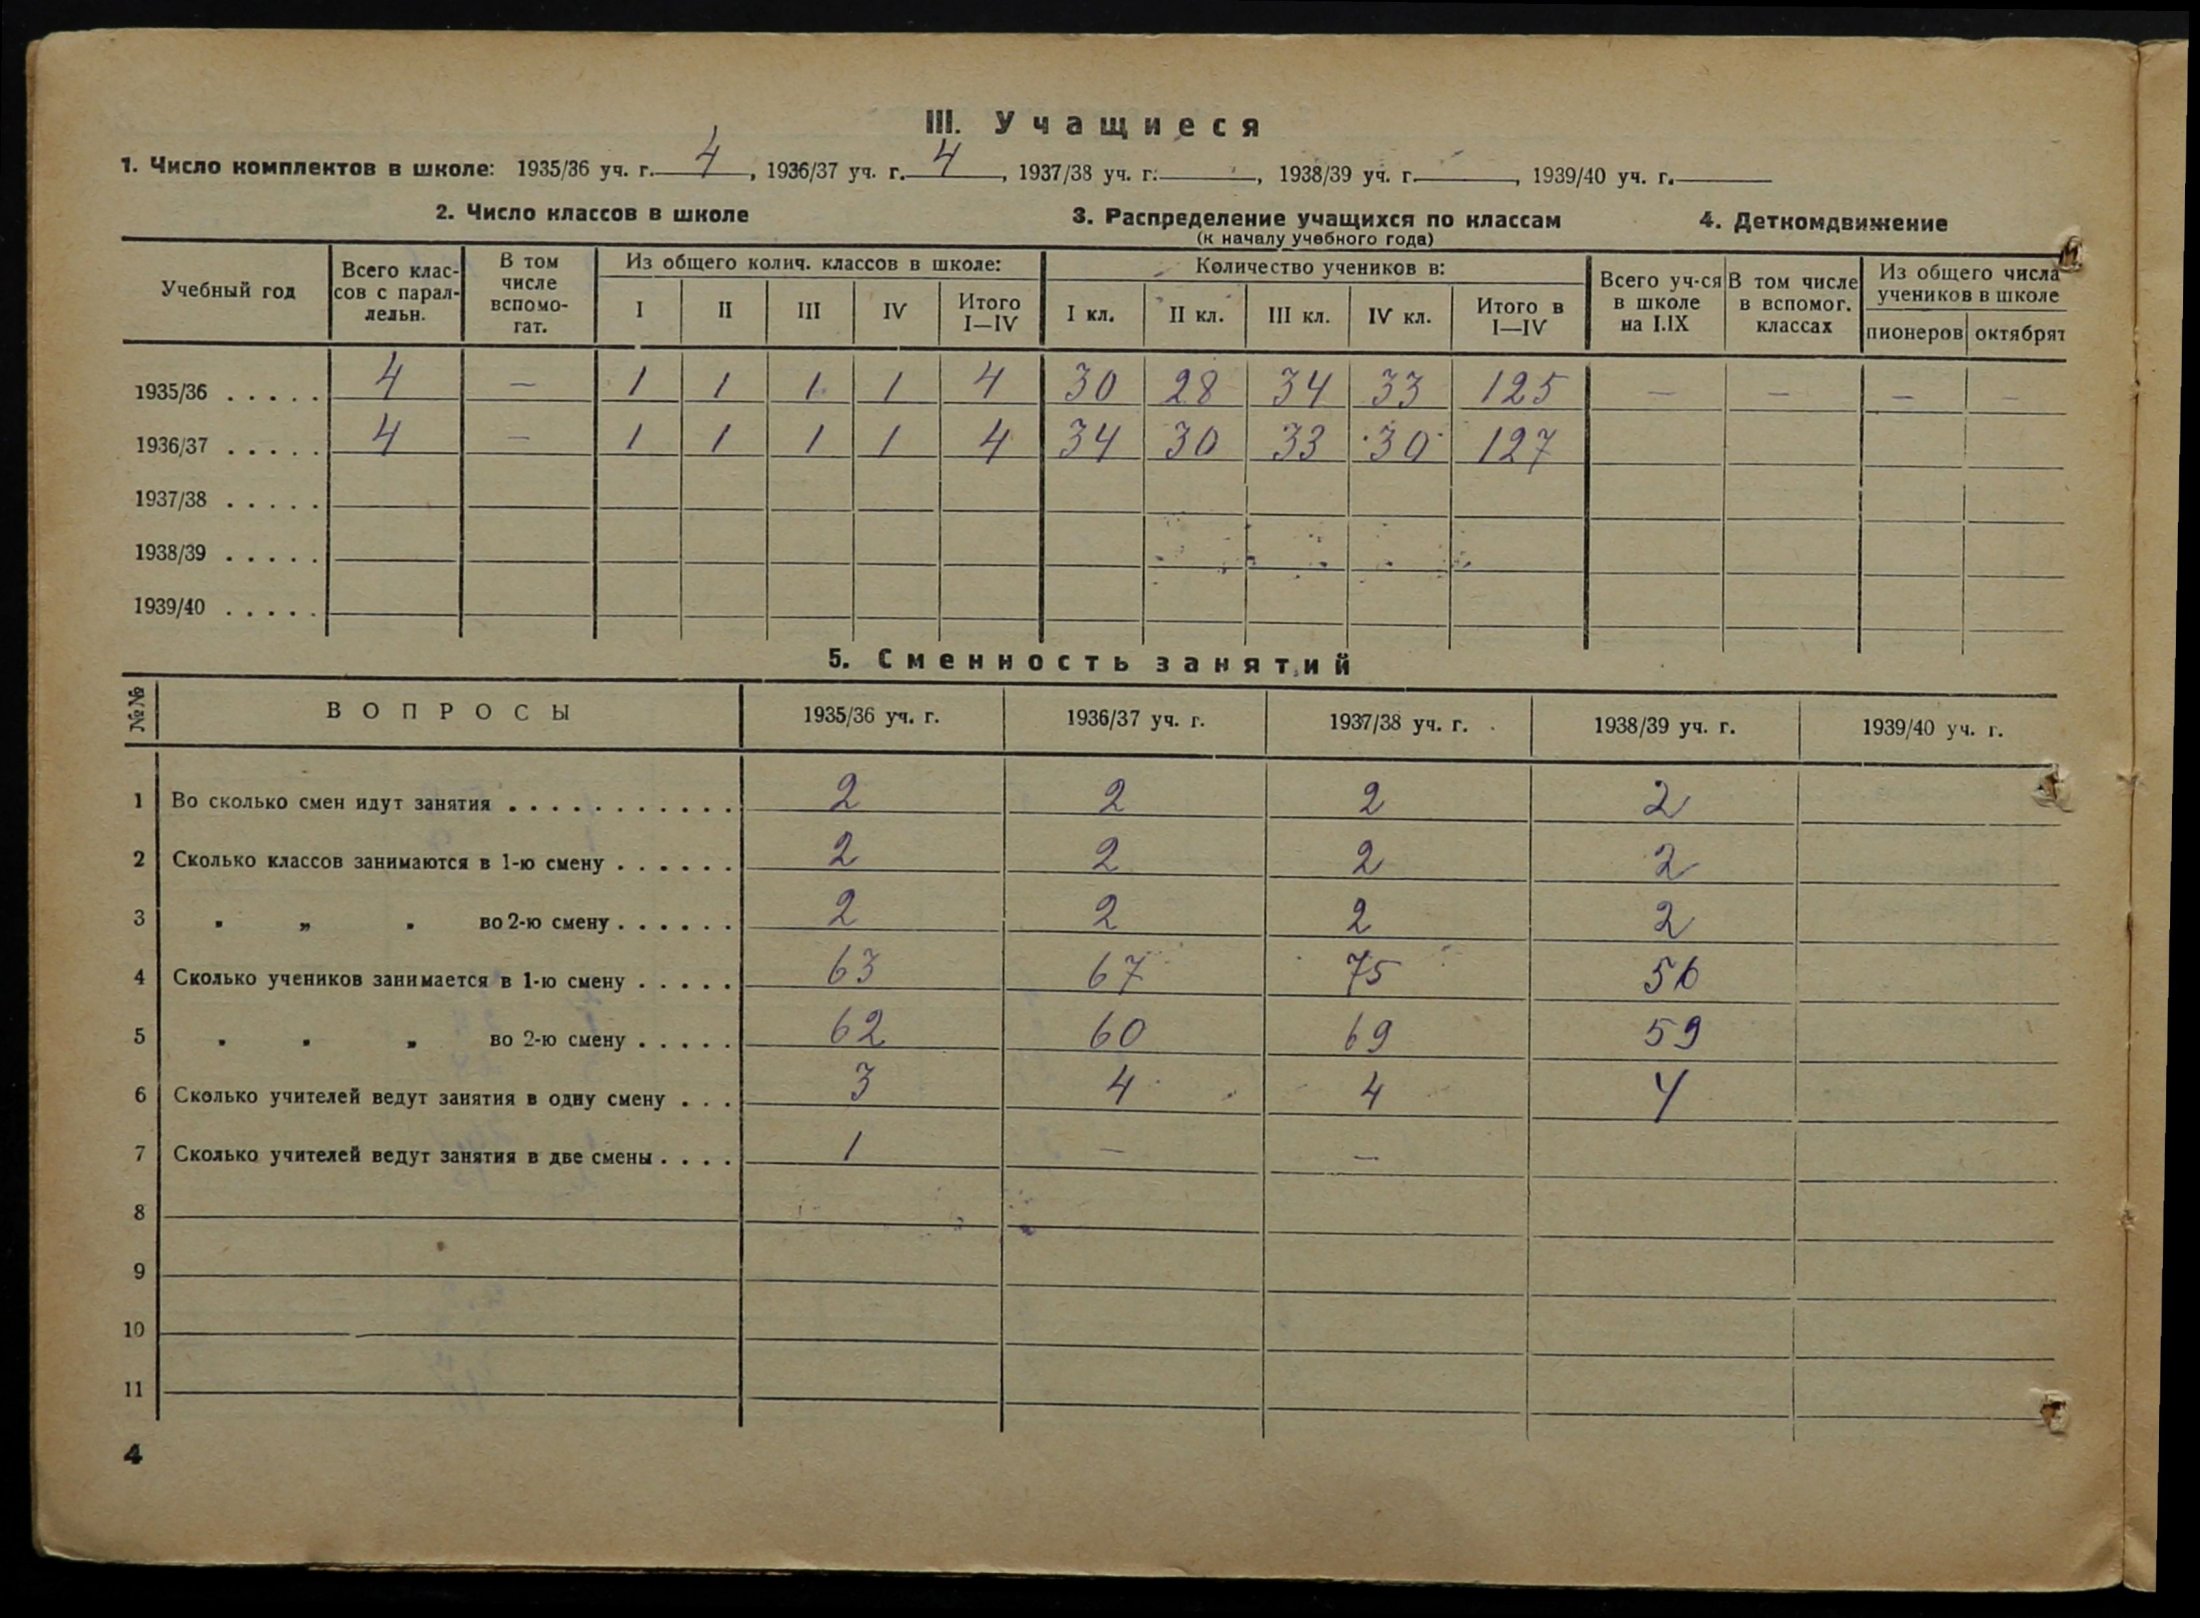 III. Учащиеся
1. Число комплектов в школе: 1935/36 уч. г. 4, 1936/37 уч. г. 4, 1937/38 уч. г. , 1938/39 уч. г. , 1939/40 уч. г.
2. Число классов в школе 3. Распределение учащихся по классам 4. Деткомдвижение
(к началу учебного года)
Учебный год Всего клас-сов с парал-лельн. В том числе вспомо-гат. Из общего колич. классов в школе: Количество учеников в: Всего уч-ся в школе на I.IX В том числе в вспомог. классах Из общего числа учеников в школе
I II III IV Итого I—IV I кл. II кл. III кл. IV кл. Итого в I—IV пионеров октябрят
1935/36 . . . . . 4 — 1 1 1 1 4 30 28 34 33 125 — — — —
1936/37 . . . . . 4 — 1 1 1 1 4 34 30 33 30 127
1937/38 . . . . .
1938/39 . . . . .
1939/40 . . . . .
5. Сменность занятий
№№ ВОПРОСЫ 1935/36 уч. г. 1936/37 уч. г. 1937/38 уч. г. 1938/39 уч. г. 1939/40 уч. г.
1 Во сколько смен идут занятия . . . . . . . . . . . 2 2 2 2
2 Сколько классов занимаются в 1-ю смену . . . . . . 2 2 2 2
3 " „ " во 2-ю смену . . . . . . 2 2 2 2
4 Сколько учеников занимается в 1-ю смену . . . . . 63 67 75 56
5 " " „ во 2-ю смену . . . . . 62 60 69 59
6 Сколько учителей ведут занятия в одну смену . . . 3 4 4 4
7 Сколько учителей ведут занятия в две смены . . . . 1 — —
8
9
10
11
4